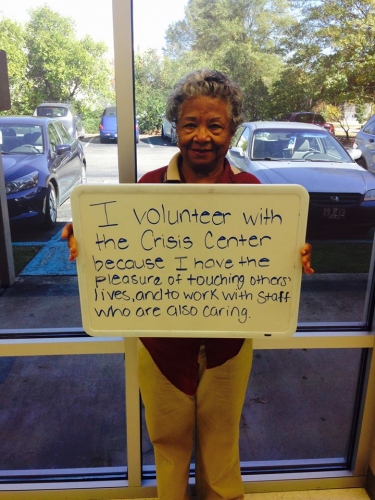 I volunteer with
the Crisis Center
because I have the
pleasure of touching others'
lives, and to work with staff
who are also caring.